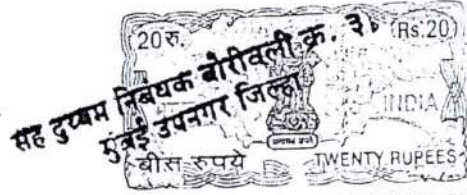 20रु. (Rs.20)
सह दुय्यम निबंधक बोरीवली क्र. ३,
मुंबई उपनगर जिल्हा
INDIA
सत्यमेव जयते
बीस रुपये TWENTY RUPEES